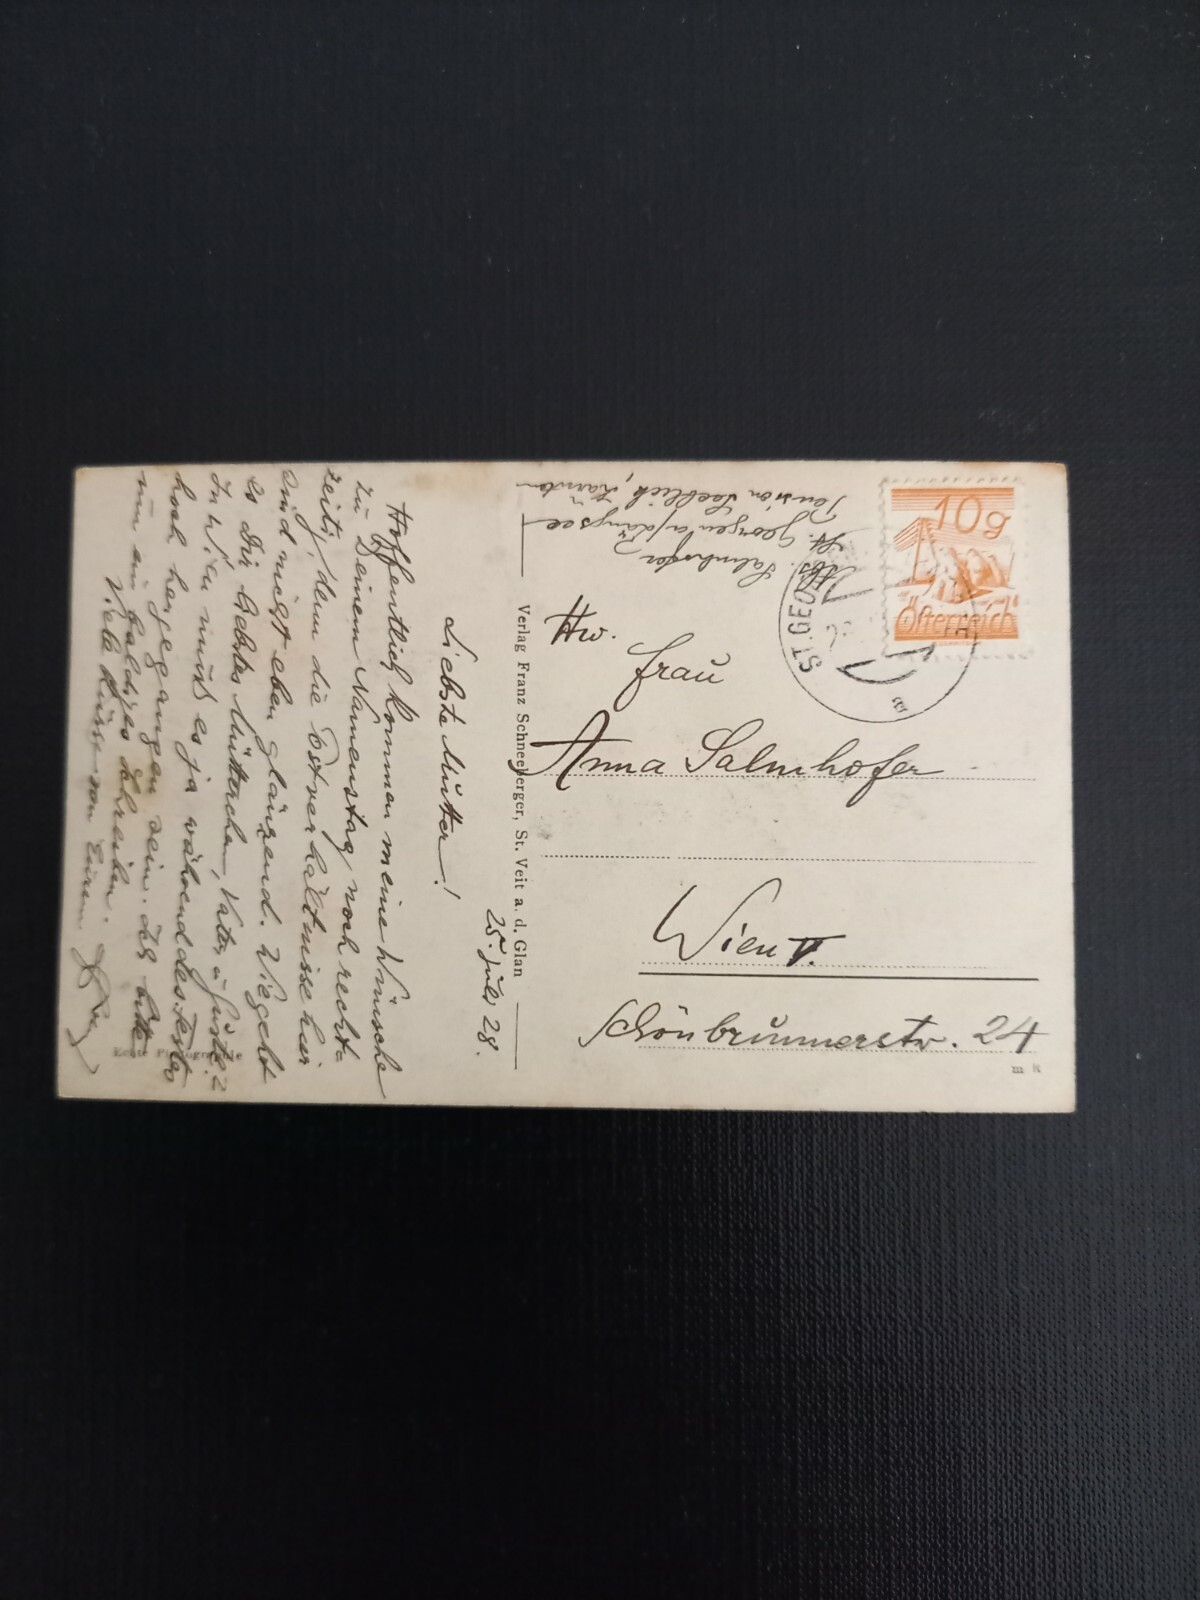 25. Juli 28.
Liebste Mutter!
Hoffentlich kommen meine Wünsche
zu Deinem Namenstag noch recht-
zeitig, denn die Postverhältnisse hier
sind nicht eben glänzend. Wie geht
es Dir liebstes Mütterchen, Vater u.
In Wien muß es ja während des Festes
hoch hergegangen sein. Ich bitte
nun um baldiges Schreiben.
Viele Küsse von Eurem
Echte Photographie
Verlag Franz Schneeberger, St. Veit a. d. Glan
Abs. Salmhofer
St. Georgen a/Längsee
Pension Seeblick, Kärnten
10g
Österreich
ST. GEO
Hw.
Frau
Anna Salmhofer
Wien V.
Schönbrunnerstr. 24
m R